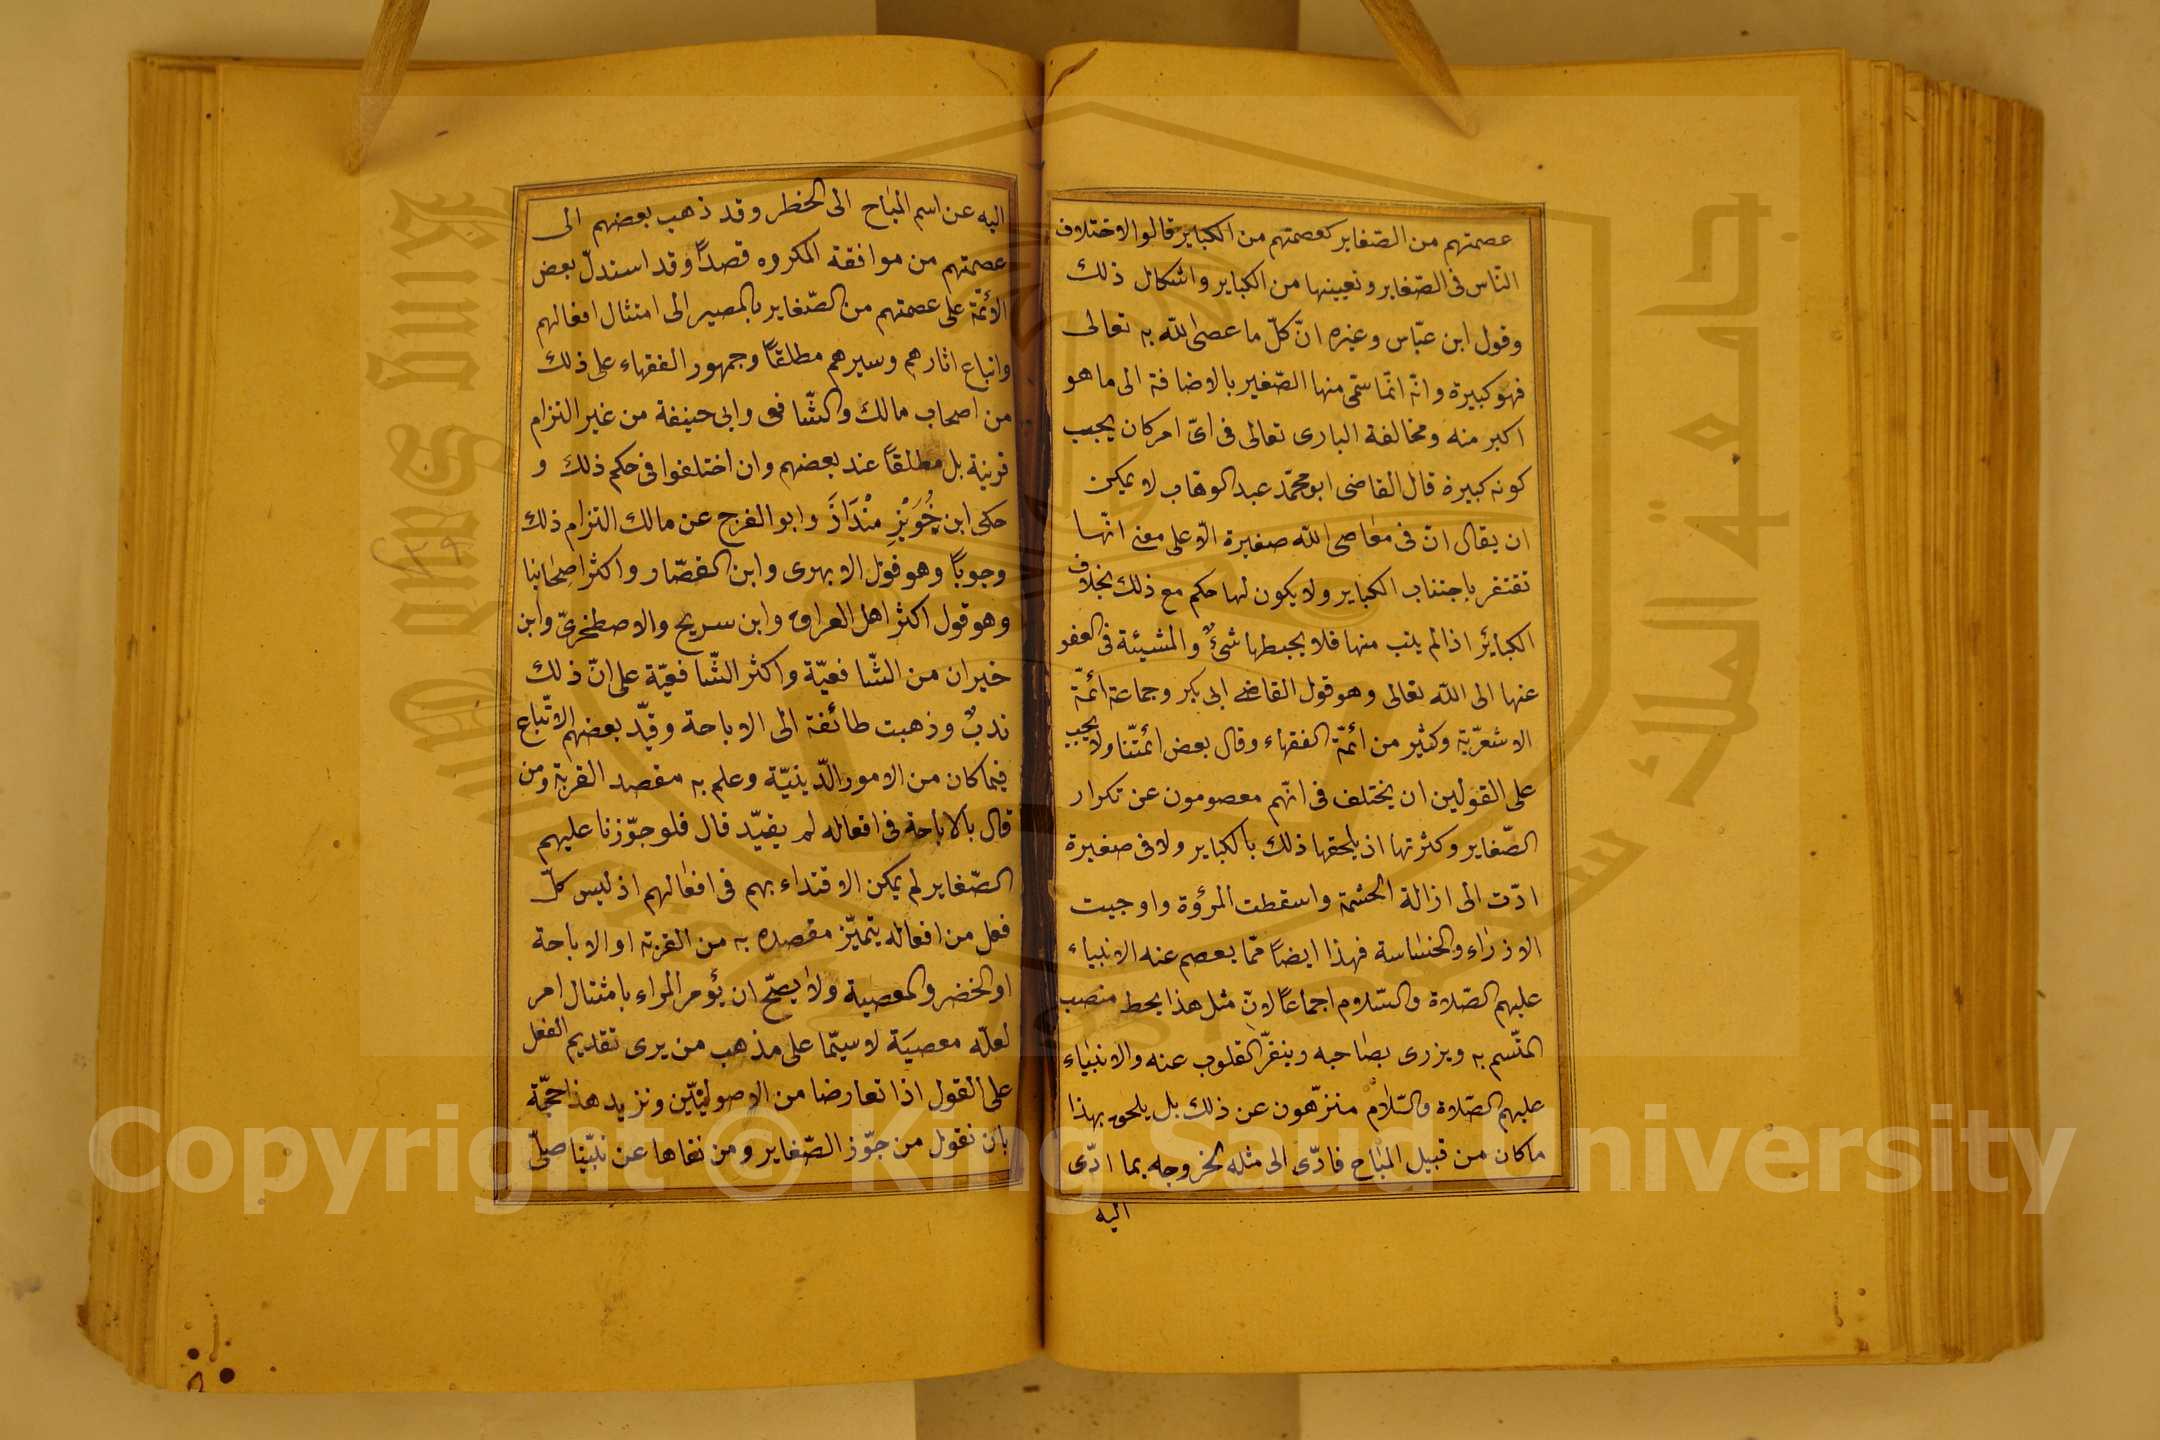 عصمتهم من الصّغاير كعصمتهم من الكباير قالوا لاختلاف
النّاس فى الصّغاير وتعيينها من الكباير واشكال ذلك
وقول ابن عبّاس وغيره انّ كلّ ما عصى الله به تعالى
فهو كبيرة وانّه انّما سمّى منها الصّغير بالاضافة الى ما هو
اكبر منه ومخالفة البارى تعالى فى اىّ امر كان يجب
كونه كبيرة قال القاضى ابو محمّد عبد الوهّاب لا يمكن
ان يقال انّ فى معاصى الله صغيرة الّا على معنى انّها
تغتفر باجتناب الكباير ولا يكون لها حكم مع ذلك بخلاف
الكبائر اذا لم يتب منها فلا يحبطها شئٌ والمشيئة فى العفو
عنها الى الله تعالى وهو قول القاضى ابى بكر وجماعة ائمّة
الاشعريّة وكثير من ائمّة الفقهاء وقال بعض ائمّتنا ولا يجب
على القولين ان يختلف فى انّهم معصومون عن تكرار
الصّغاير وكثرتها اذ يلحقها ذلك بالكباير ولا فى صغيرة
ادّت الى ازالة الحشمة واسقطت المرؤة واوجبت
الازراء والخساسة فهذا ايضاً ممّا يعصم عنه الانبياء
عليهم الصّلاة والسّلام اجماعاً لانّ مثل هذا يحط منصب
المتّسم به ويزرى بصاحبه وينفّر القلوب عنه والانبياء
عليهم الصّلاة والسّلام منزّهون عن ذلك بل يلحق بهذا
ما كان من قبيل المباح فادّى الى مثله لخروجه بما ادّى
اليه
اليه عن اسم المباح الى الخطر وقد ذهب بعضهم الى
عصمتهم من موافقة المكروه قصداً وقد استدلّ بعض
الائمّة على عصمتهم من الصّغاير بالمصير الى امتثال افعالهم
واتباع اثارهم وسيرهم مطلقاً وجمهور الفقهاء على ذلك
من اصحاب مالك والشّافعى وابى حنيفة من غير التزام
قرينة بل مطلقاً عند بعضهم وان اختلفوا فى حكم ذلك و
حكى ابن خُوَيْزِ مِنْدَاذَ وابو الفرج عن مالك التزام ذلك
وجوباً وهو قول الابهرى وابن القصّار واكثر اصحابنا
وهو قول اكثر اهل العراق وابن سريح والاصطخرىّ وابن
خيران من الشّافعيّة واكثر الشّافعيّة على انّ ذلك
ندبٌ وذهبت طائفة الى الاباحة وقيّد بعضهم الاتّباع
فيما كان من الامور الدّينيّة وعلم به مقصد القربة ومن
قال بالاباحة فى افعاله لم يقيّد قال فلو جوّزنا عليهم
الصّغاير لم يمكن الاقتداء بهم فى افعالهم اذ ليس كلّ
فعل من افعاله يتميّز مقصده به من القربة او الاباحة
او الخضر والمعصية ولا يصحّ ان يؤمر المراء بامتثال امر
لعلّه معصية لاسيّما على مذهب من يرى تقديم الفعل
على القول اذا تعارضا من الاصوليّين ونزيد هذا حجّة
بان نقول من جوّز الصّغاير ومن نفاها عن نبيّنا صلّى
Copyright © King Saud University
جامعة الملك سعود
King Saud University